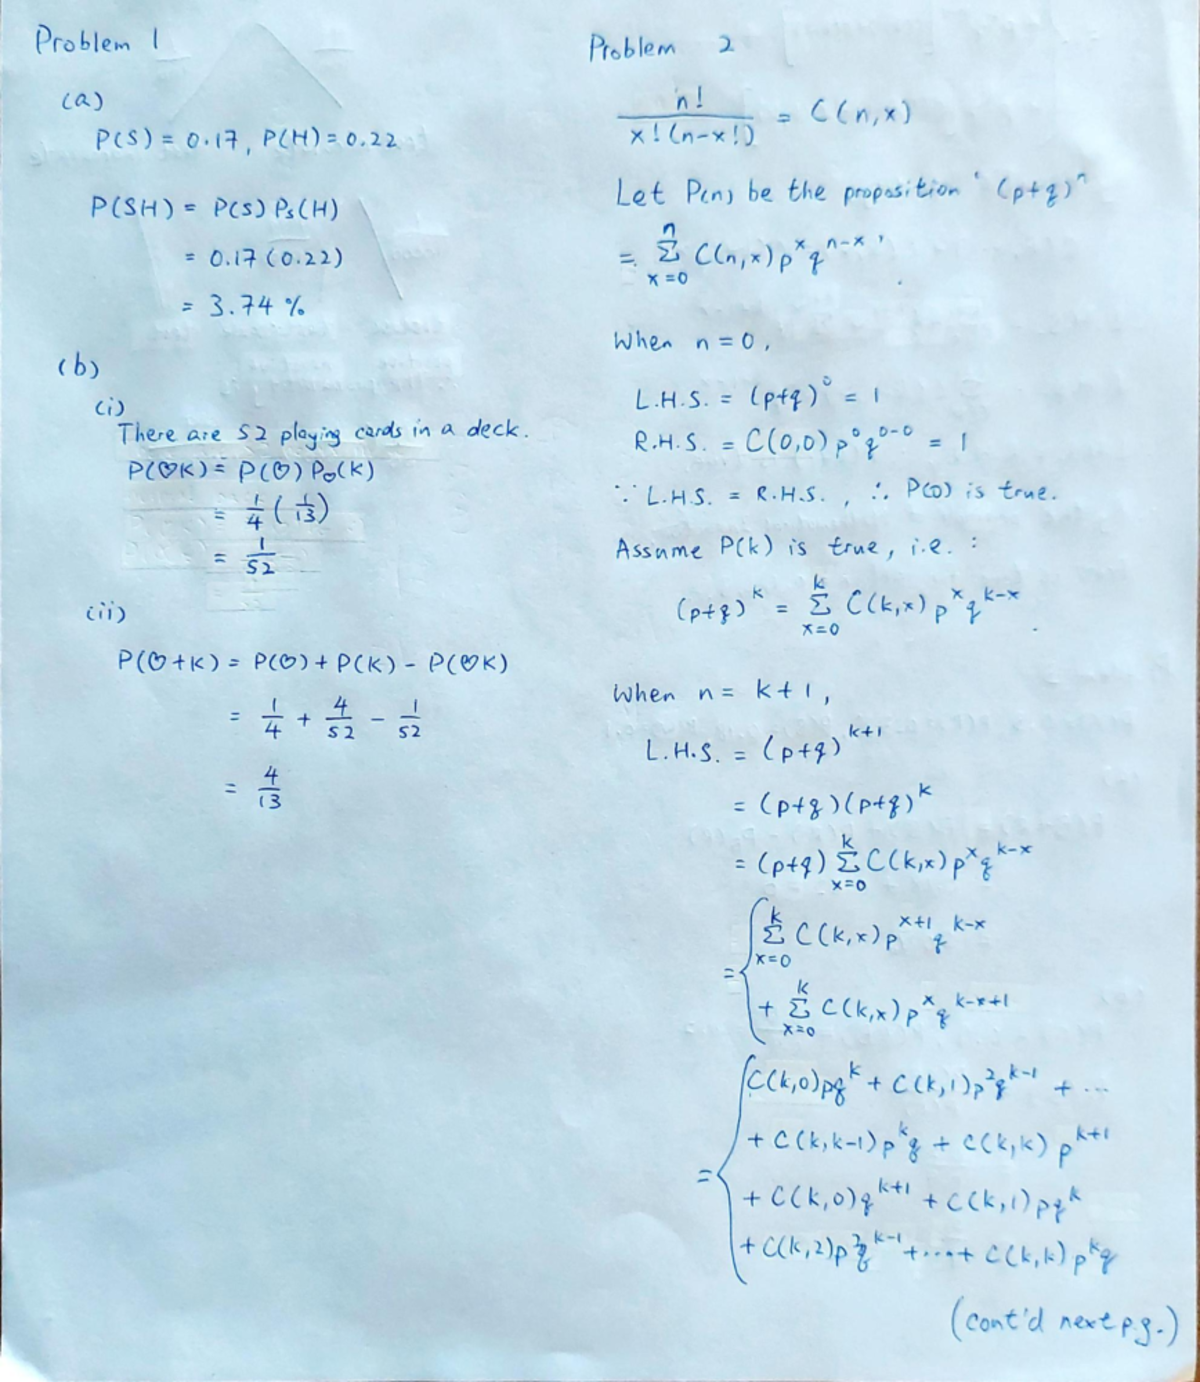 Problem 1
(a)
P(S) = 0.17, P(H) = 0.22
P(SH) = P(S) Pₛ(H)
= 0.17 (0.22)
= 3.74 %
(b)
(i)
There are 52 playing cards in a deck.
P(♡K) = P(♡) P♡(K)
= 1/4 (1/13)
= 1/52
(ii)
P(♡+K) = P(♡) + P(K) - P(♡K)
= 1/4 + 4/52 - 1/52
= 4/13
Problem 2
n! / x!(n-x!) = C(n,x)
Let P(n) be the proposition ' (p+q)^n
= Σ_{x=0}^{n} C(n,x) p^x q^{n-x} '
When n = 0,
L.H.S. = (p+q)^0 = 1
R.H.S. = C(0,0) p^0 q^{0-0} = 1
∵ L.H.S. = R.H.S. , ∴ P(0) is true.
Assume P(k) is true, i.e. :
(p+q)^k = Σ_{x=0}^{k} C(k,x) p^x q^{k-x}
When n = k+1,
L.H.S. = (p+q)^{k+1}
= (p+q)(p+q)^k
= (p+q) Σ_{x=0}^{k} C(k,x) p^x q^{k-x}
= { Σ_{x=0}^{k} C(k,x) p^{x+1} q^{k-x}
+ Σ_{x=0}^{k} C(k,x) p^x q^{k-x+1}
= { C(k,0)pq^k + C(k,1)p^2q^{k-1} + ...
+ C(k,k-1)p^k q + C(k,k) p^{k+1}
+ C(k,0)q^{k+1} + C(k,1)pq^k
+ C(k,2)p^2q^{k-1} + .... + C(k,k) p^k q
(cont'd next p.g.)